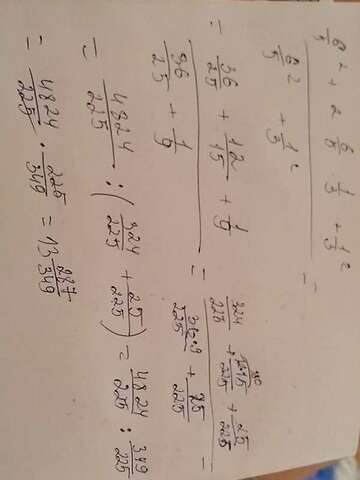 6/5² + 2 6/5 1/3 + 1/3² =
6/5² + 1/3²
= 36/25 + 12/15 + 1/9 = 324/225 + 12·15/225 180 + 25/225 =
36/25 + 1/9 36·9/225 + 25/225
= 4824/225 : ( 324/225 + 25/225 ) = 4824/225 : 349/225
= 4824/225 · 225/349 = 13 287/349